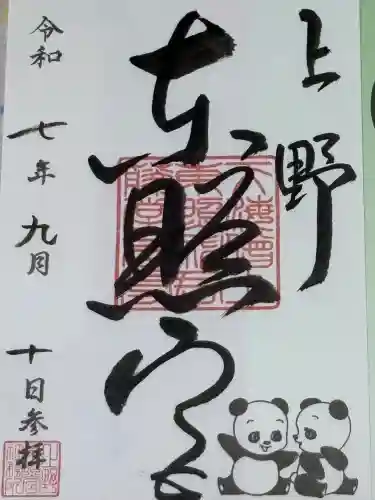 上野
東照宮
令和七年九月十日参拝